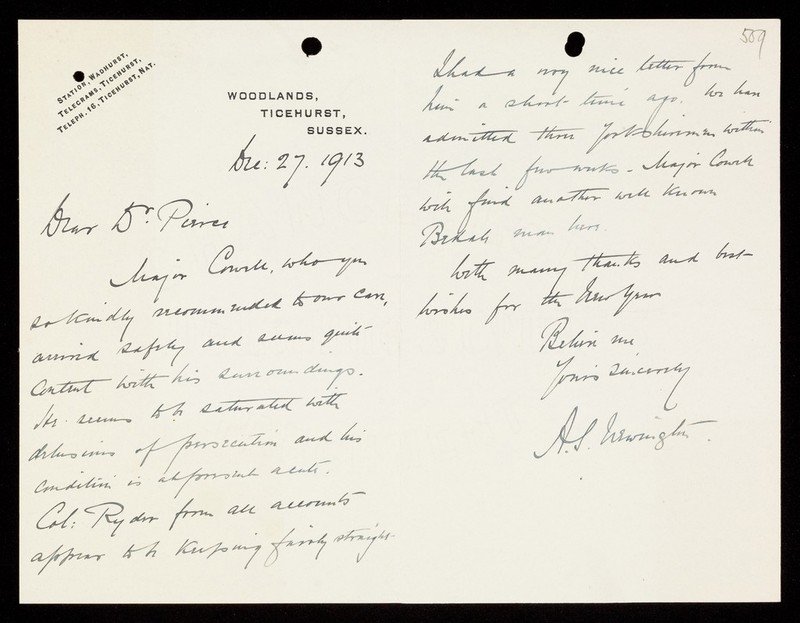 STATION, WADHURST,
TELEGRAMS, TICEHURST,
TELEPH. 16, TICEHURST, NAT.
WOODLANDS,
TICEHURST,
SUSSEX.
Dec: 27. 1913
Dear Dr. Pierce
Major Cowell, who you
so kindly recommended to our care,
arrived safely and seems quite
content with his surroundings.
He seems to be saturated with
delusions of persecution and his
condition is at present acute.
Col: Ryder from all accounts
appears to be keeping fairly straight-
509
I had a very nice letter from
him a short time ago. We have
admitted three Yorkshiremen within
the last few weeks - Major Cowell
will find another well known
man here.
With many thanks and best
wishes for the New Year
Believe me
Yours sincerely
A.S. Newington.